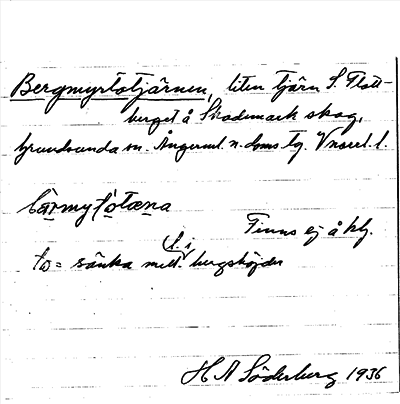 Bergmyrtotjärnen, liten tjärn S. Flatt-
berget å Skademark skog,
Grundsunda sn. Ångerml. n. doms tg. Vnorrl. l.
bæ̀rmyṭòtæna
Finns ej å kby.
to = sänka mell. bergshöjder
l. i
H A Söderberg 1936